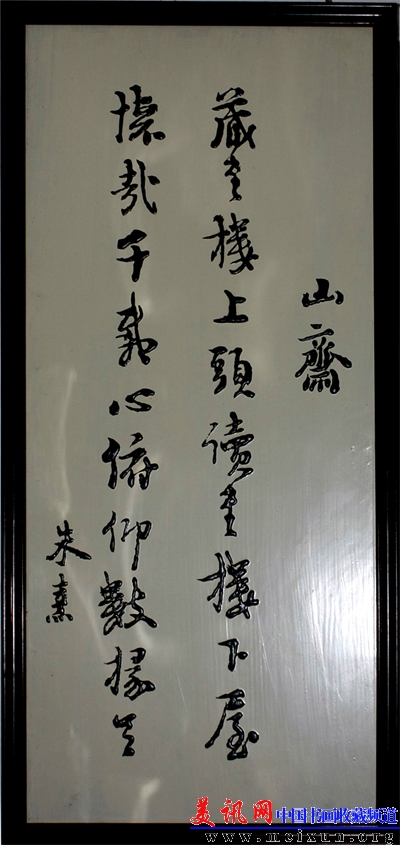 山齋
藏書樓上頭讀書樓下屋
懷哉千載心俯仰數椽足
朱熹
美讯网 中国书画收藏频道
www.meixun.org